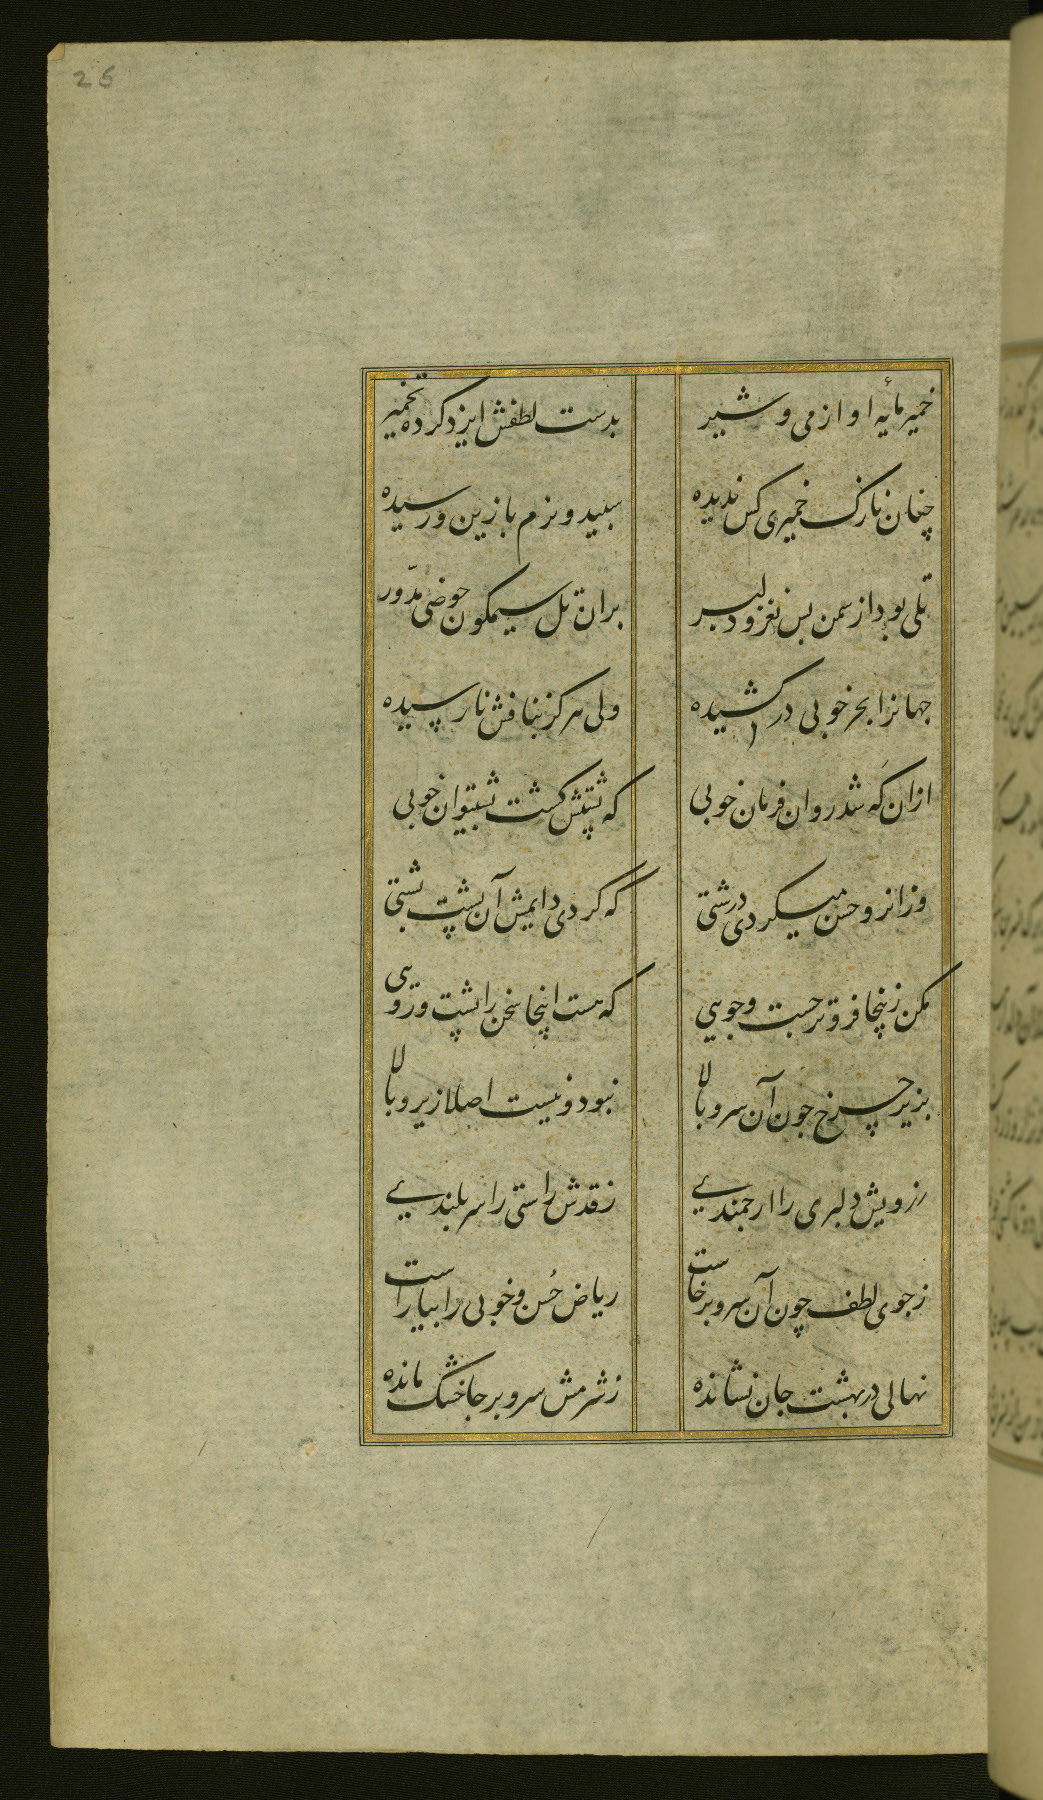 26
خمیر مایهٔ او از می و شیر
بدست لطفش ایزد کرده تخمیر
چنان نازک خمیری کس ندیده
سپید و نرم بازین ور سیده
تلی بود از سمن بس نغز و دلبر
بران تل سیمگون حوضی مدّور
جهانرا بحر خوبی در کشیده
ولی هرکز بنافش نا رسیده
ازان که شد روان فرمان خوبی
که پشتش کشت پشتیوان خوبی
وزانرو حسن میکردی درشتی
که کردی دایمش آن پشت پشتی
مکن زینجا فروتر جست وجویی
که هست اینجا سخن را پشت و رویی
بزیر چرخ جون آن سرو بالا
نبود و نیست اصلا زیر و بالا
ز رویش دلبری را ارجمندی
ز قدش راستی را سر بلندی
ز جوی لطف چون آن سرو برخاست
ریاض حُسن و خوبی را بیاراست
نهالی در بهشت جان نشانده
ز شرمش سرو بر جا خشک مانده